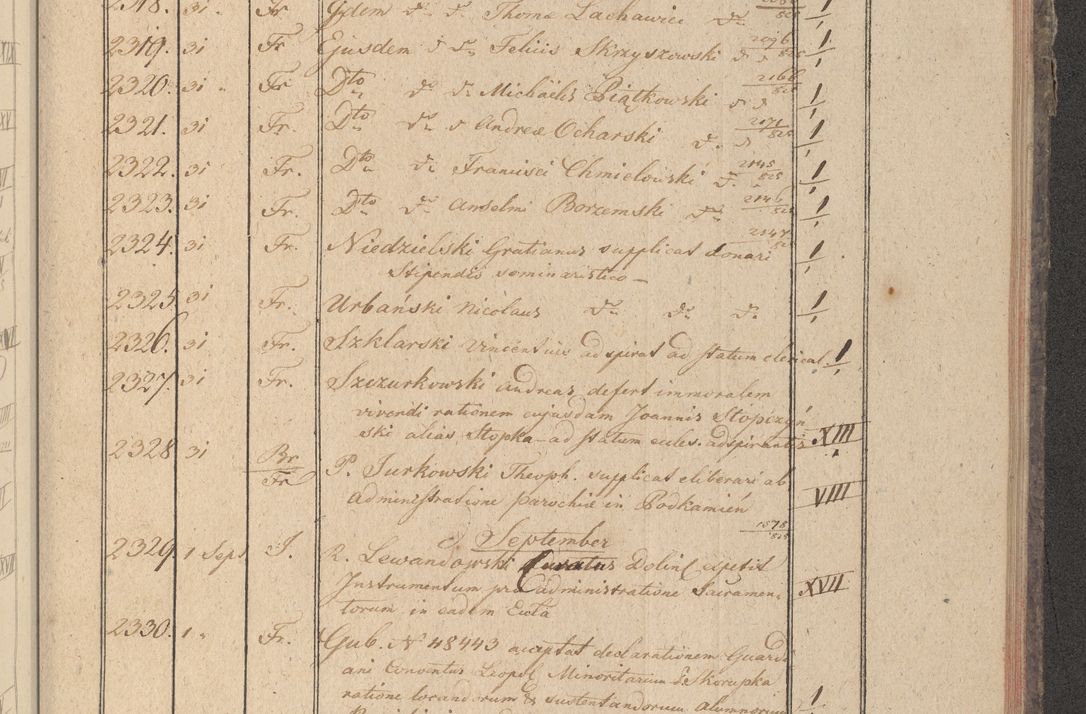 2318. 31 Fr Ejdem do do Thomæ Lachawicz do 1
2319. 31 Fr Ejusdem do do Felicis Skrzyszowski do 2096/825 1
2320. 31 " Fr Dto do do Michaëlis Piątkowski do 2166/825 1
2321. 31 Fr. Dto do do Andreæ Ocharski do 2171/825 1
2322. 31 Fr. Dto do Francisci Chmielowski do 2145/825 1
2323. 31 Fr. Dto do Anselmi Borzemski do 2146/825 1
2324. 31 Fr. Niedzielski Gratianus supplicat donari 2147/825 1
Stipendio seminaristico –
2325 31 Fr. Urbański Nicolaus do do do 1
2326. 31 Fr. Szklarski Vincentius adspirat ad statum clerical. 1
2327. 31 Fr. Szczurkowski Andreas defert immoralem
vivendi rationem cujusdam Joannis Stopczyń
ski alias Stopka – ad statum eccles. adspirantis XIII
2328 31 Br/Fr P. Jurkowski Theoph. supplicat eliberari ab
administratione parochiæ in Podkamień VIII
September 1578/825
2329 1 Sept J. R. Lewandowski Curatus Dolin expetit
Instrumentum pro administratione Sacramen- XVII
torum in eadem Eccla
2330. 1 " Fr. Gub. N 48443 acceptat declarationem Guardi
ani Conventus Leopol Minoritarum de Skorupka
ratione locandorum & sustentandorum alumnorum 1